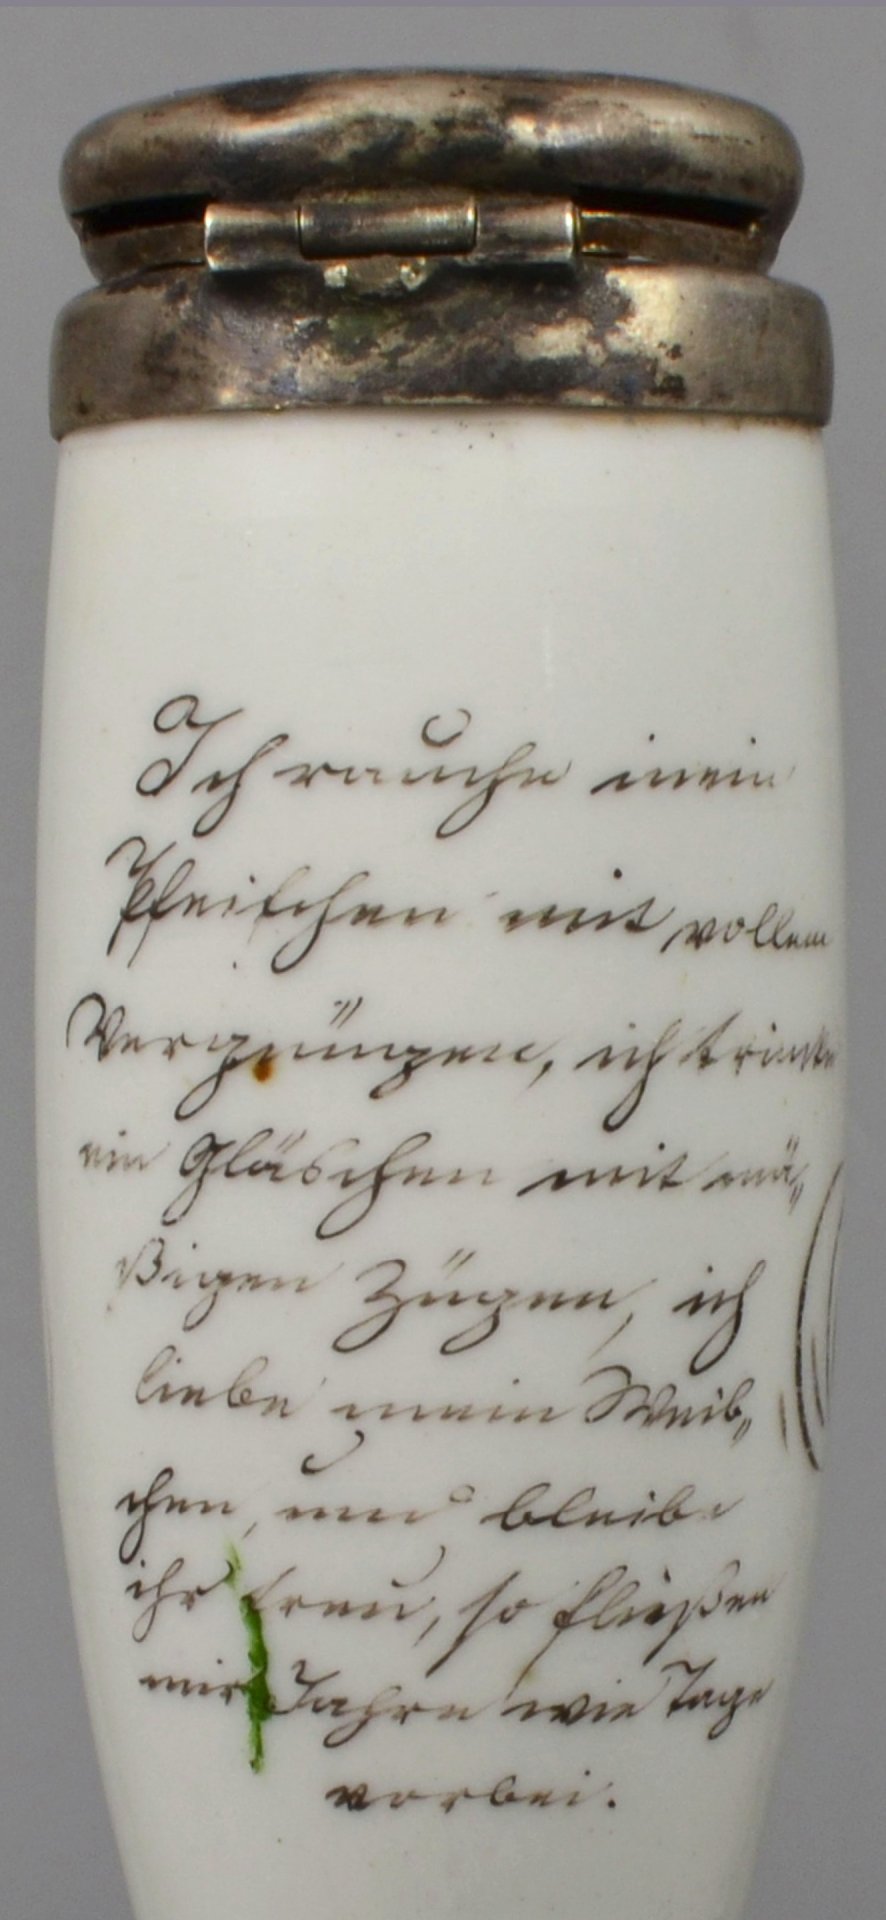 Ich rauche mein
Pfeifchen mit vollem
Vergnügen, ich trinke
ein Gläschen mit mä„
ßigen Zügen, ich
liebe mein Weib„
chen, und bleibe
ihr treu, so fließen
mir Jahre wie Tage
vorbei.